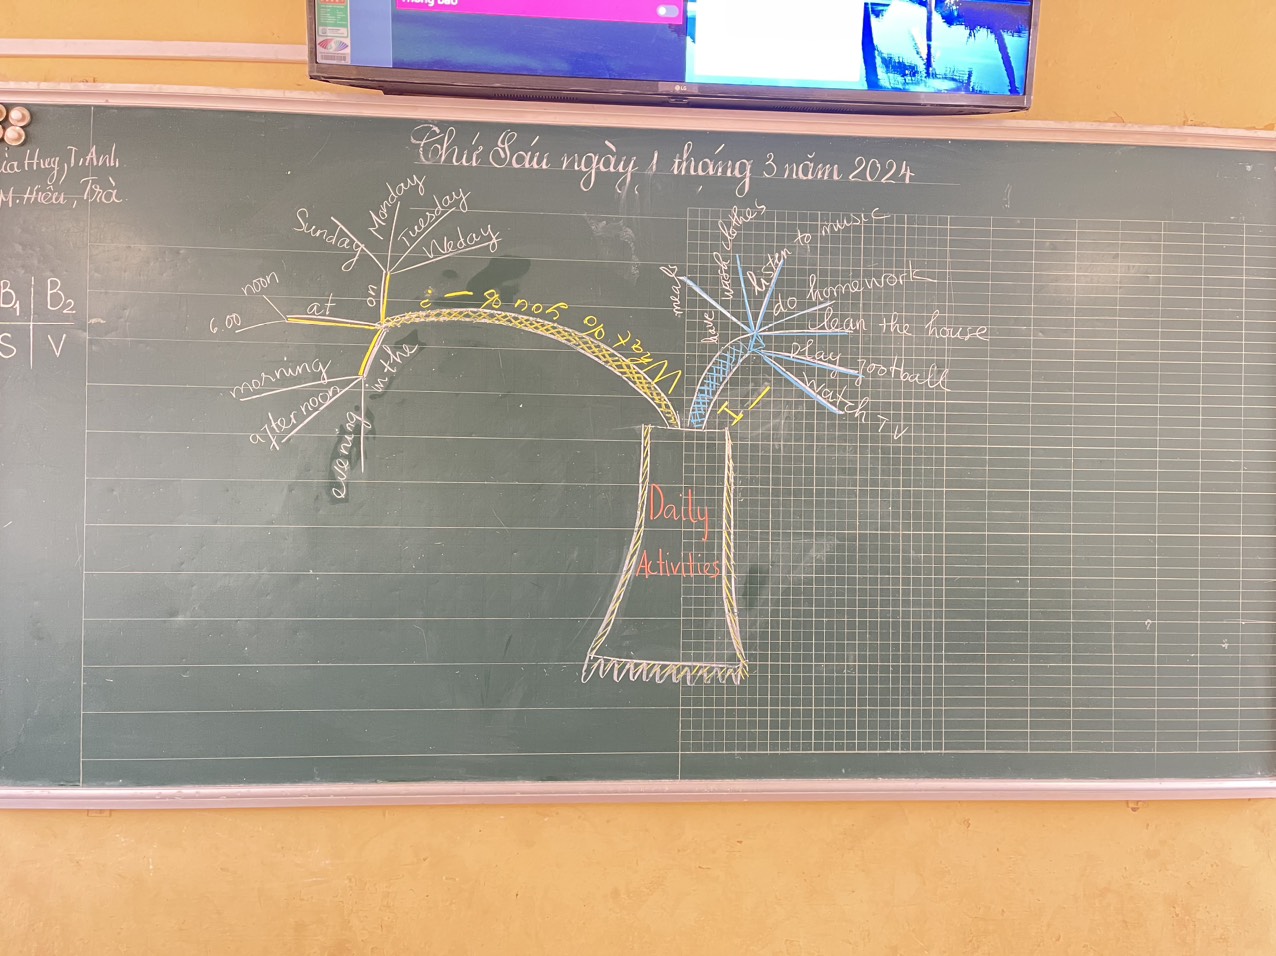 Thông báo
LG
Thứ Sáu ngày 1 tháng 3 năm 2024
Huy, T. Anh
M. Hiếu, Trà
B1 B2
S V
Sunday
Monday
Tuesday
Weday
on
noon
6.00
at
morning
afternoon
evening
in the
What do you do _ ?
have meals
wash clothes
listen to music
do homework
clean the house
play football
watch TV
I _
Daily
Activities